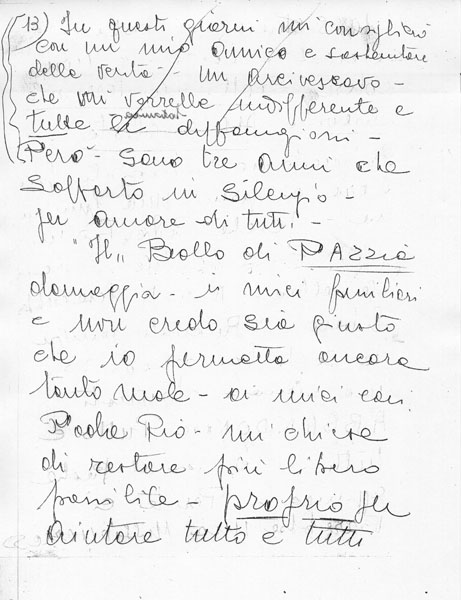 13) In questi giorni mi consiglierò
con un mio amico e sostenitore
della verità - un arcivescovo -
che mi vorrebbe indifferente a
tutte le diffamazioni -
Però - sono tre anni che
soffro in silenzio -
per amore di tutti. -
"Il" Bollo di PAZZIA
danneggia - i miei familiari
e non credo sia giusto
che io permetta ancora
tanto male - ai miei cari.
Padre Pio - mi chiese
di restare più libero
possibile - proprio per
aiutare tutto e tutti